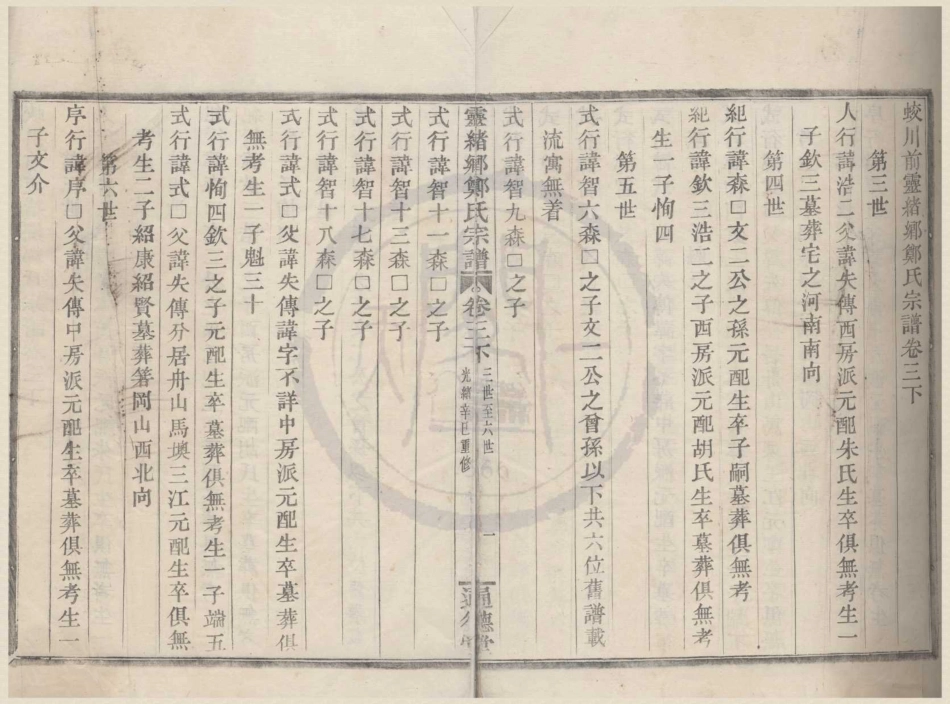 蛟川前靈緒鄉鄭氏宗譜卷三下
第三世
人行諱浩二父諱失傳西房派元配朱氏生卒俱無考生一
子欽三墓葬宅之河南南向
第四世
紀行諱森□文二公之孫元配生卒子嗣墓葬俱無考
紀行諱欽三浩二之子西房派元配胡氏生卒墓葬俱無考
生一子恂四
第五世
式行諱智六森□之子文二公之曾孫以下共六位舊譜載
流寓無着
式行諱智九森□之子
靈緒鄉鄭氏宗譜 卷三下 三世至六世 光緒辛巳重修 一 通德堂
式行諱智十一森□之子
式行諱智十三森□之子
式行諱智十七森□之子
式行諱智十八森□之子
式行諱式□父諱失傳諱字不詳中房派元配生卒墓葬俱
無考生一子魁三十
式行諱恂四欽三之子元配生卒墓葬俱無考生一子端五
式行諱式□父諱失傳分居舟山馬墺三江元配生卒俱無
考生二子紹康紹賢墓葬箬岡山西北向
第六世
序行諱序□父諱失傳中房派元配生卒墓葬俱無考生一
子文介